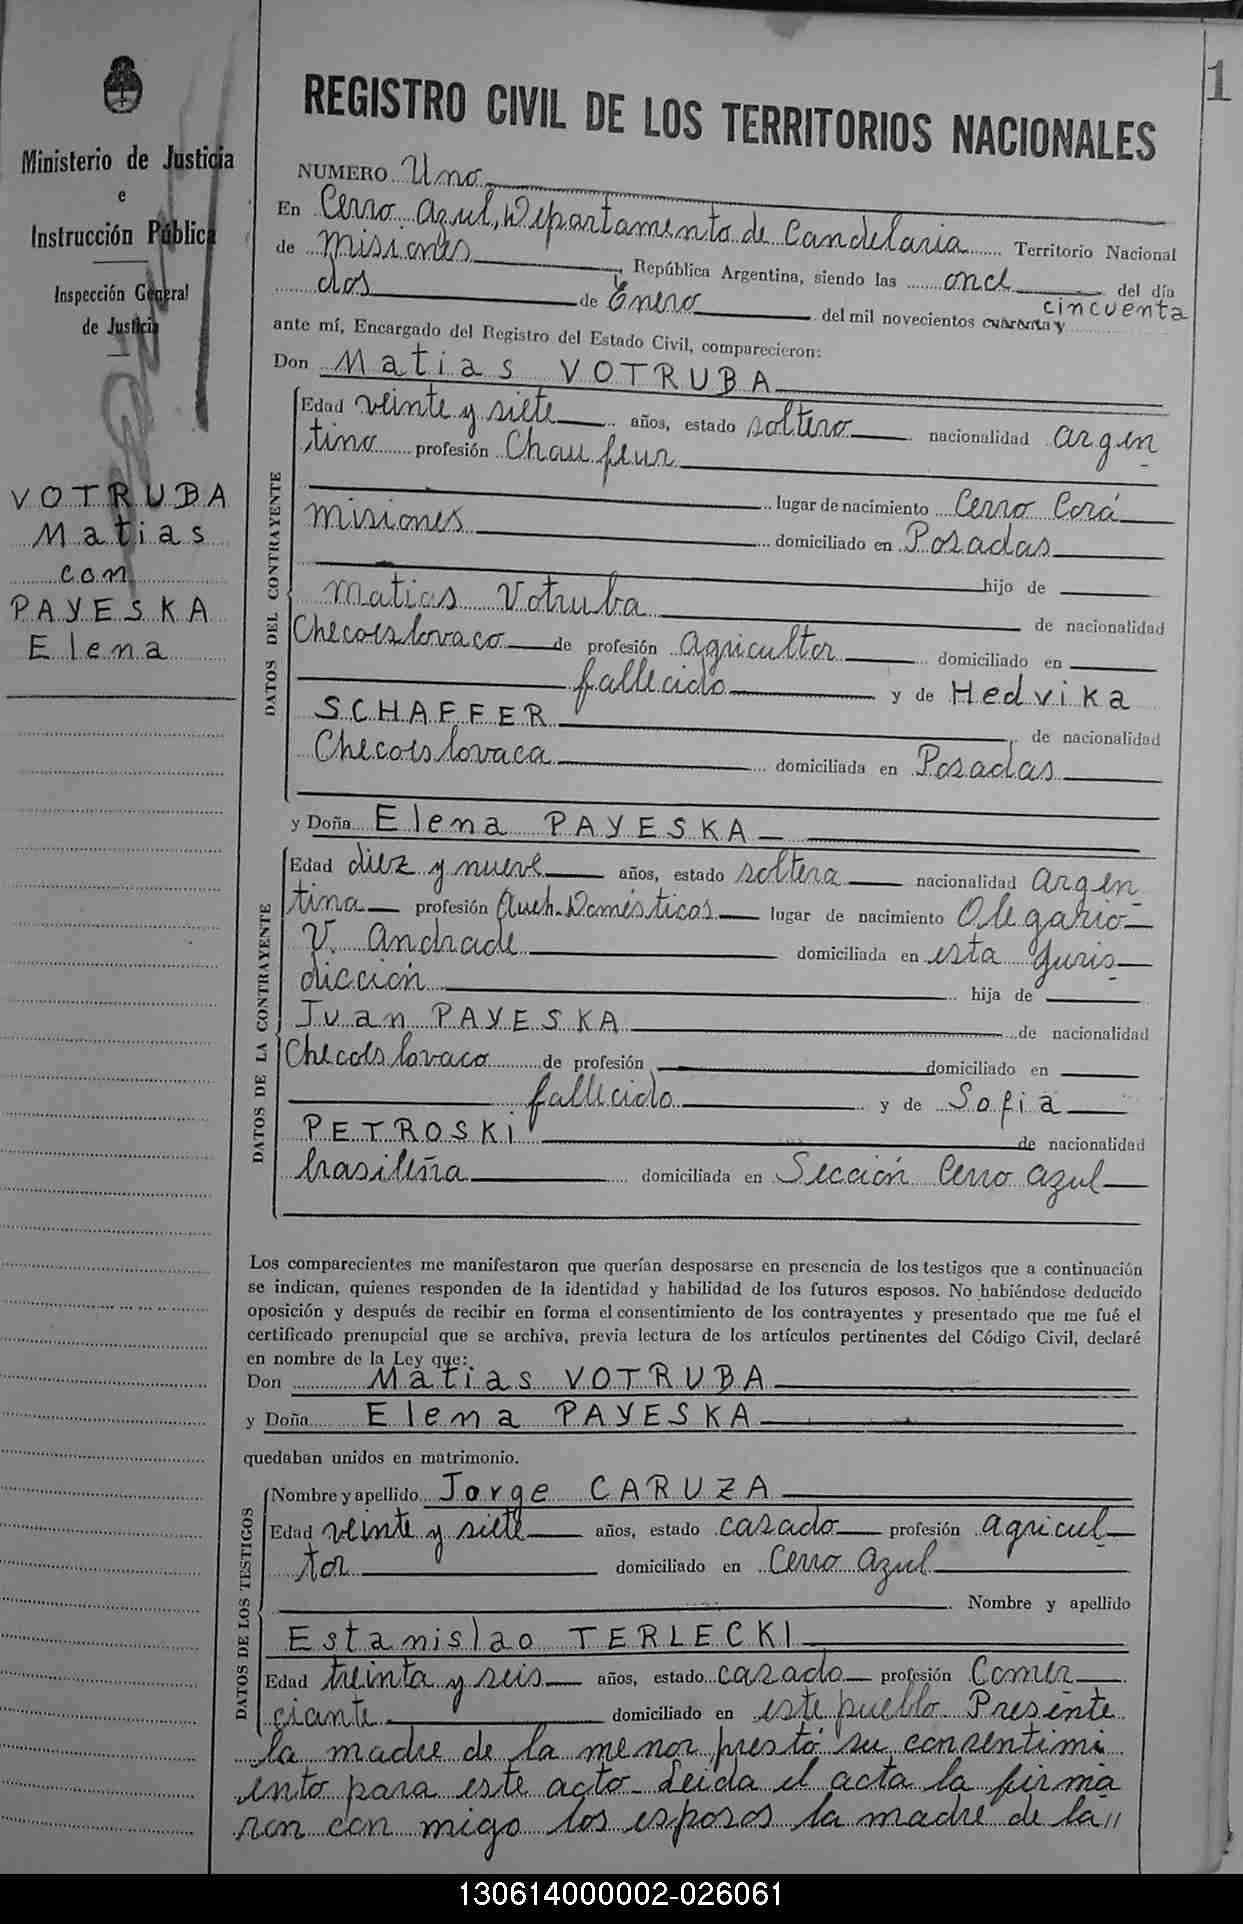 1
Ministerio de Justicia
e
Instrucción Pública
Inspección General
de Justicia
VOTRUBA
Matias
con
PAYESKA
Elena
REGISTRO CIVIL DE LOS TERRITORIOS NACIONALES
NUMERO Uno
En Cerro Azul, Departamento de Candelaria Territorio Nacional
de Misiones, República Argentina, siendo las once del día
dos de Enero del mil novecientos cuarenta y cincuenta
ante mí, Encargado del Registro del Estado Civil, comparecieron:
Don Matias VOTRUBA
DATOS DEL CONTRAYENTE
Edad veinte y siete años, estado soltero nacionalidad argen
tino profesión Chaufeur
lugar de nacimiento Cerro Corá
Misiones domiciliado en Posadas
hijo de
Matias Votruba de nacionalidad
Checoeslovaco de profesión Agricultor domiciliado en
fallecido y de Hedvika
SCHAFFER de nacionalidad
Checoeslovaca domiciliada en Posadas
y Doña Elena PAYESKA
DATOS DE LA CONTRAYENTE
Edad diez y nueve años, estado soltera nacionalidad Argen
tina profesión Queh. Domésticos lugar de nacimiento Olegario
V. Andrade domiciliada en esta Juris
dicción hija de
Juan PAYESKA de nacionalidad
Checoeslovaco de profesión domiciliado en
fallecido y de Sofia
PETROSKi de nacionalidad
brasileña domiciliada en Sección Cerro Azul
Los comparecientes me manifestaron que querían desposarse en presencia de los testigos que a continuación
se indican, quienes responden de la identidad y habilidad de los futuros esposos. No habiéndose deducido
oposición y después de recibir en forma el consentimiento de los contrayentes y presentado que me fué el
certificado prenupcial que se archiva, previa lectura de los artículos pertinentes del Código Civil, declaré
en nombre de la Ley que:
Don Matias VOTRUBA
y Doña Elena PAYESKA
quedaban unidos en matrimonio.
DATOS DE LOS TESTIGOS
Nombre y apellido Jorge CARUZA
Edad veinte y siete años, estado casado profesión agricul
tor domiciliado en Cerro Azul
Nombre y apellido
Estanislao TERLECKI
Edad treinta y seis años, estado casado profesión Comer
ciante domiciliado en este pueblo Presente
la madre de la menor prestó su consentimi
ento para este acto. Leida el acta la firma
ron con migo los esposos la madre de la //
130614000002-026061